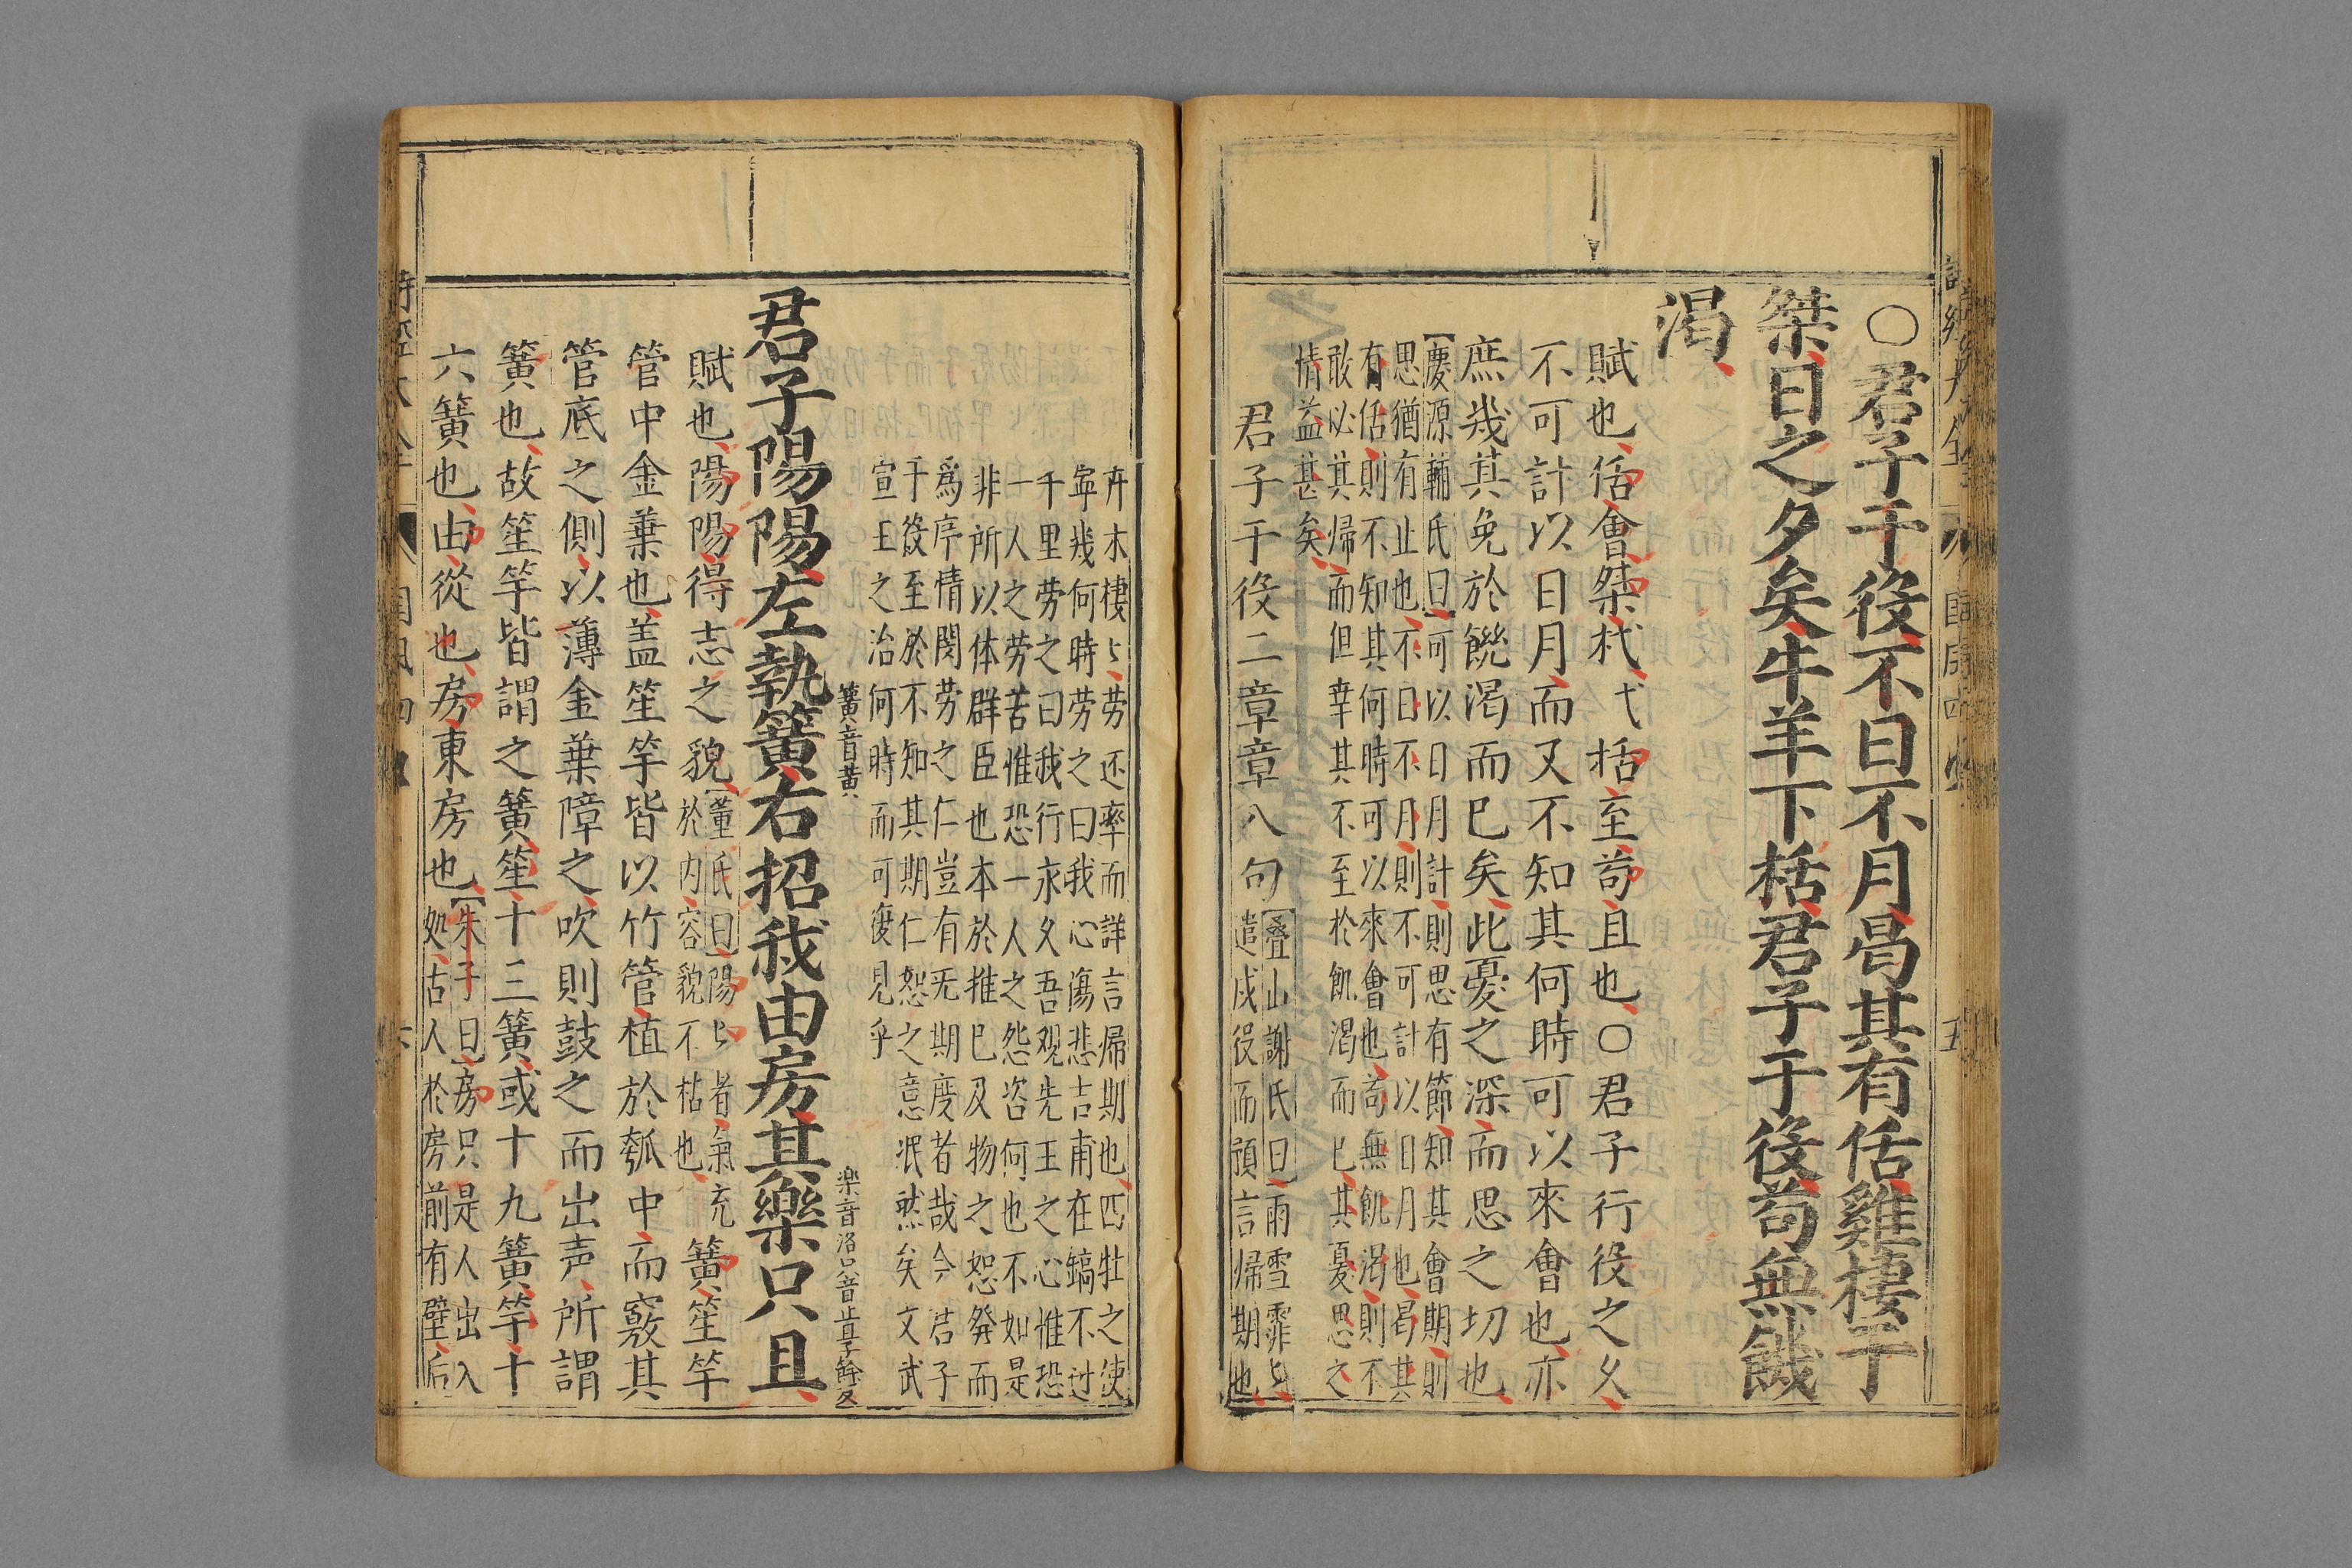 詩經大全 國風四 五
〇君子于役不日不月曷其有佸雞棲于
桀日之夕矣牛羊下栝君子于役苟無饑
渴
賦也佸會桀杙弋栝至苟且也〇君子行役之久
不可計以日月而又不知其何時可以來會也亦
庶幾其免於饑渴而已矣此憂之深而思之切也
慶源輔氏曰可以日月計則思有節知其會期則
思猶有止也不日不月則不可計以日月也曷其
有佸則不知其何時可以來會也苟無飢渴則不
敢必其歸而但幸其不至於飢渴而已其憂思之
情益甚矣
君子于役二章章八句
叠山謝氏曰雨雪霏〻
遣戍役而預言歸期也
卉木棲〻劳还率而詳言歸期也四牡之使
寧幾何時劳之曰我心傷悲吉甫在鎬不过
千里劳之曰我行永久吾观先王之心惟恐
一人之劳苦惟恐一人之怨咨何也不如是
非所以体群臣也本於推已及物之恕發而
爲序情閔劳之仁豈有无期度者哉今君子
于役至於不知其期仁恕之意泯然矣文武
宣王之治何時而可復見乎
簧音黄 樂音洛只音止且子餘反
君子陽陽左執簧右招我由房其樂只且
賦也陽陽得志之貌
董氏曰陽〻者氣充
於内容貌不枯也
簧笙竽
管中金葉也盖笙竽皆以竹管植於瓠中而竅其
管底之側以薄金葉障之吹則鼓之而出声所謂
簧也故笙竽皆謂之簧笙十三簧或十九簧竽十
六簧也由從也房東房也
朱子曰房只是人出入
処古人於房前有壁后
詩經大全 國風四 六